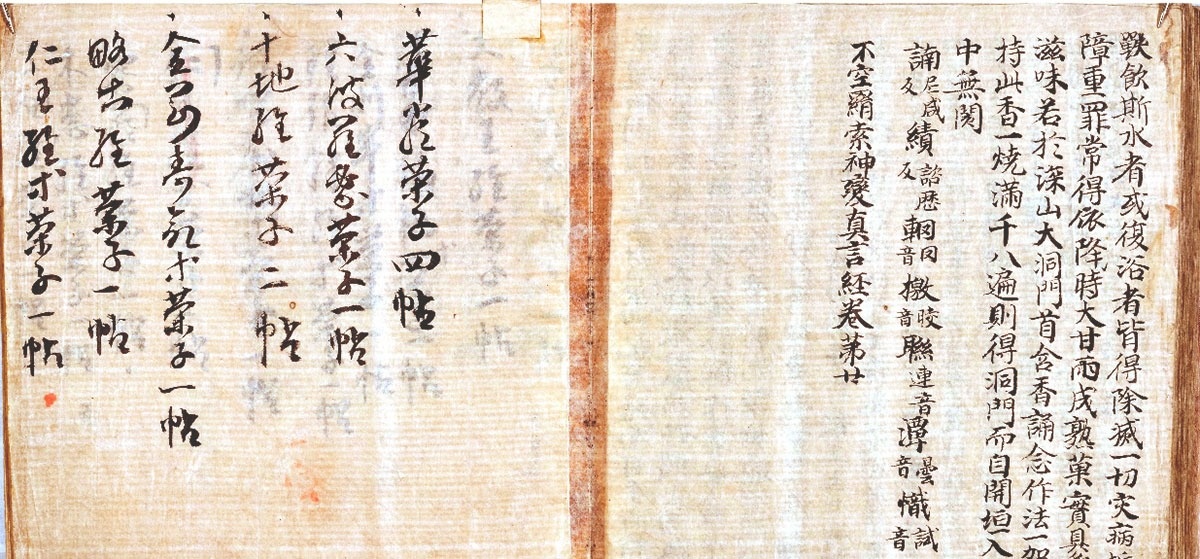 歠飲斯水者或復浴者皆得除滅一切灾病
障重罪常得依降時大甘雨成熟菓實具
滋味若於深山大洞門首含香誦念作法一
持此香一燒滿千八遍則得洞門而自開垣入
中無閡
諵尼咸反績諮歴反輞同音檄晈音聮連音潭曇音幟試音
不空羂索神變真言経卷苐廿
華嚴菜子四帖
六波羅蜜菜子一帖
十地経菜子二帖
壽命菜子一帖
略出経菜子一帖
仁王経菜子一帖